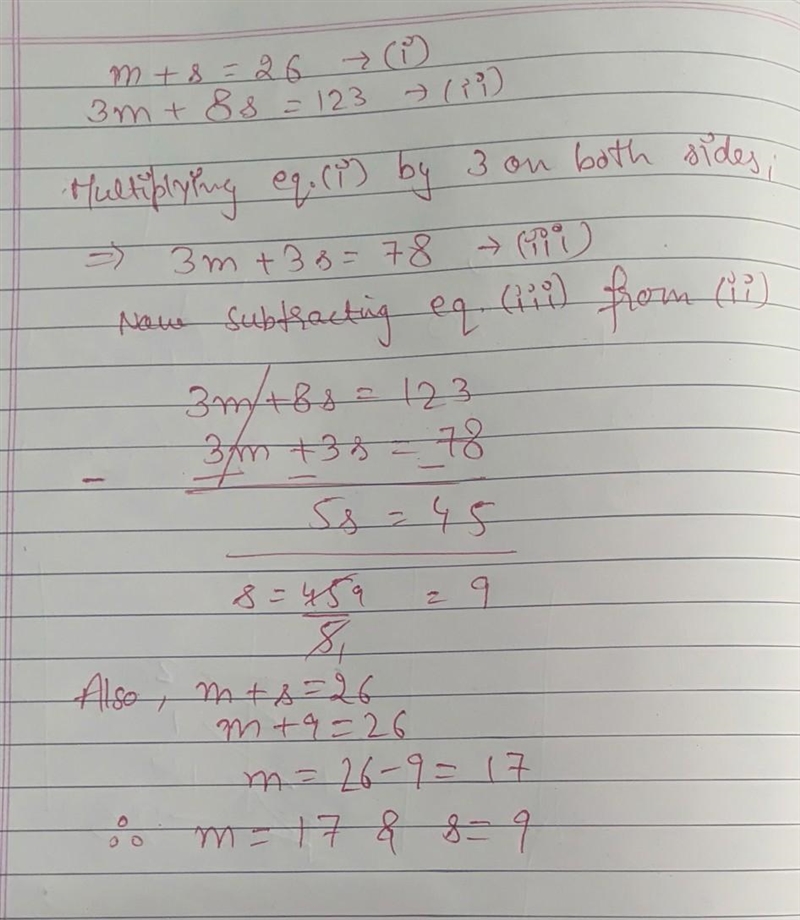 m + s = 26 → (i)
3m + 8s = 123 → (ii)
Multiplying eq.(i) by 3 on both sides,
⇒ 3m + 3s = 78 → (iii)
Now subtracting eq. (iii) from (ii)
3m + 8s = 123
- 3m + 3s = 78
− − −
5s = 45
s = 45 9 = 9
5 1
Also, m + s = 26
m + 9 = 26
m = 26 - 9 = 17
∴ m = 17 & s = 9